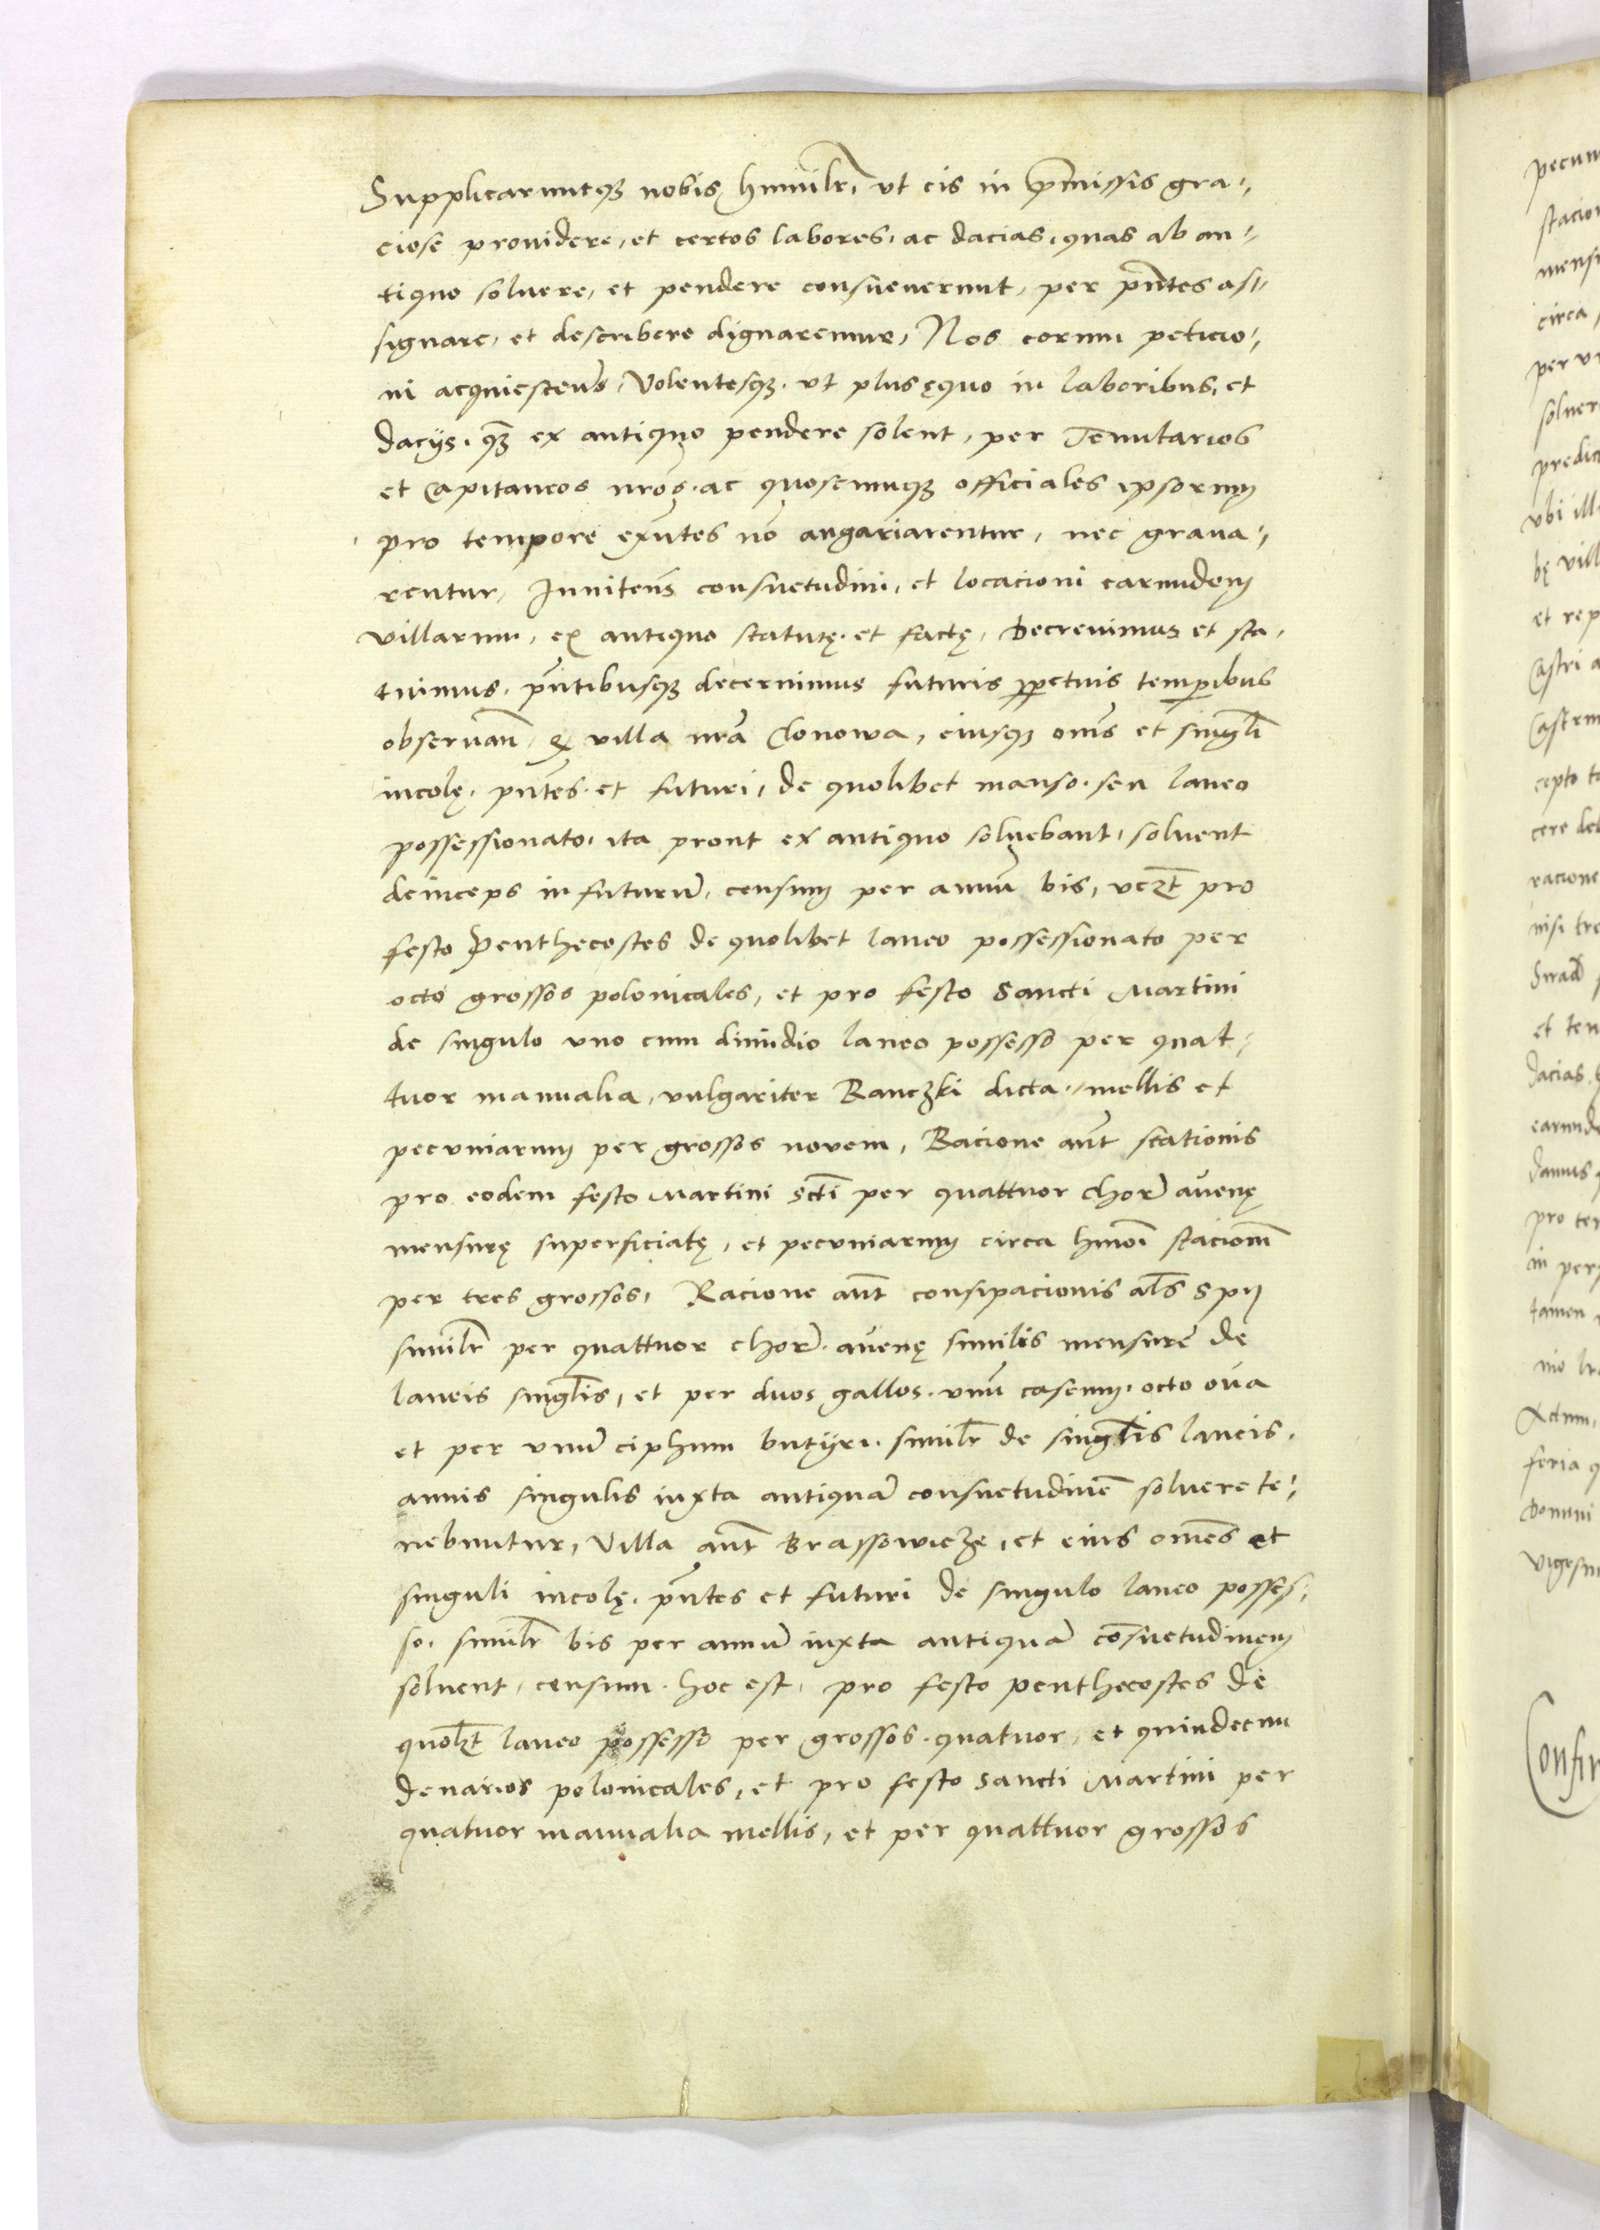 Supplicaruntqꝫ nobis humilr̃, ut eis in p̃missis gra⸗
ciose providere, et certos labores, ac dacias, quas ab an⸗
tiquo solvere, et pendere consueverunt, per pñtes as⸗
signare, et describere dignaremur, Nos eorum peticio⸗
ni acquiescens̃, Volentesqꝫ, ut plus ęquo in laboribus, et
dacijs, qꝫ ex antiquo pendere solent, per Tenutarios
et Capitaneos nr̃os, ac quoscumqꝫ officiales ipsorum
pro tempore exñtes nõ angariarentur, nec grava⸗
rentur, Innitens̃ consuetudini, et locacioni earumdem
villarum, ex antiquo statutę, et factę, Decrevimus et sta⸗
tuimus, pñtibusqꝫ decernimus futuris ꝑpetuis temꝑibus
observañ, ꝙ villa nr̃a Clonowa, eiusqꝫ oms̃ et singl̃i
incolę, pñtes et futuri, de quolibet manso seu laneo
possessionato, ita prout ex antiquo solvebant, solvent
deinceps in futurũ, censum per annũ bis, vcꝫt pro
festo Penthecostes de quolibet laneo possessionato per
octo grossos polonicales, et pro festo Sancti Martini
de singulo uno cum dimidio laneo possesso per quat⸗
tuor manualia, vulgariter Ranczki dicta, mellis et
pecuniarum per grossos novem, Racione aut̃ stationis
pro eodem festo Martini sct̃i per quattuor chor̃ avenę
mensurę superficiatę, et pecuniarum circa hmoĩ stacionm̃
per tres grossos, Racione aut̃ consipacionis al̃s spij
similr̃ per quattuor chor̃ avenę similis mensurę de
laneis singl̃is, et per duos gallos, unũ caseum, octo ova
et per unũ ciphum butÿri, similr̃ de singl̃is laneis,
annis singulis iuxta antiquã consuetudinẽ solvere te⸗
nebuntur, Villa aut̃ Brassowicze, et eius omẽs et
singuli incolę, pñtes et futuri de singulo laneo posses⸗
so, similr̃ bis per annũ iuxta antiquã cõsuetudinem
solvent, censum, hoc est, pro festo penthecostes de
quolꝫt laneo possesso per grossos quatuor, et quindecim
denarios polonicales, et pro festo sancti Martini per
quatuor manualia mellis, et per quattuor grossos